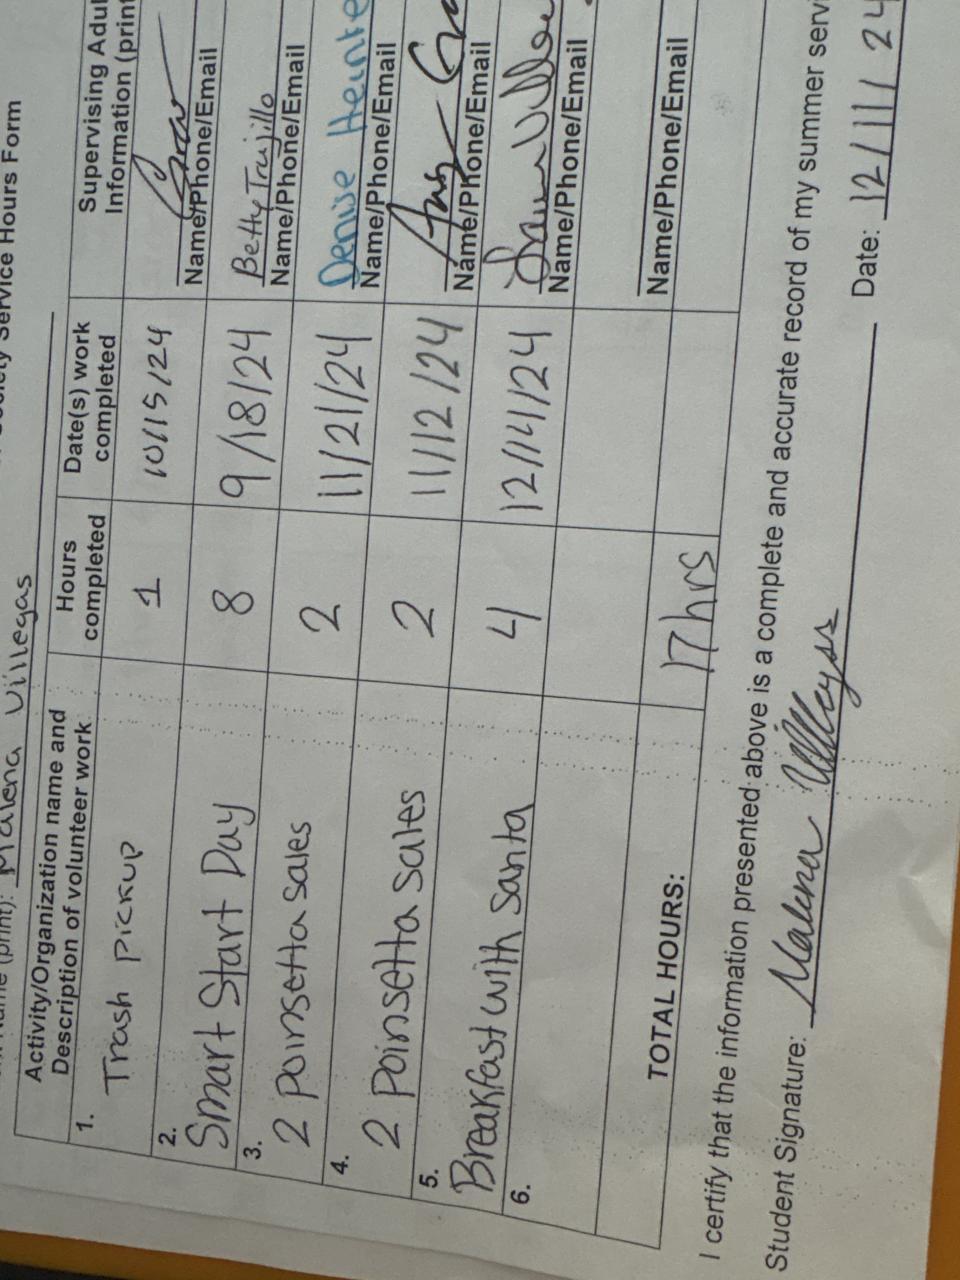 Society Service Hours Form
Name (print): Malena Villegas
Activity/Organization name and Description of volunteer work
Hours completed
Date(s) work completed
Supervising Adul
Information (print
1. Trash Pickup
1
10/15/24
Name/Phone/Email
2. Smart Start Day
8
9/18/24
Betty Trujillo
Name/Phone/Email
3. 2 Poinsetta sales
2
11/21/24
Denise Heinte
Name/Phone/Email
4. 2 Poinsetta sales
2
11/12/24
Name/Phone/Email
5. Breakfast with Santa
4
12/14/24
Name/Phone/Email
6.
Name/Phone/Email
TOTAL HOURS: 17 hrs
I certify that the information presented above is a complete and accurate record of my summer servi
Student Signature: Malena Villegas Date: 12/11/24